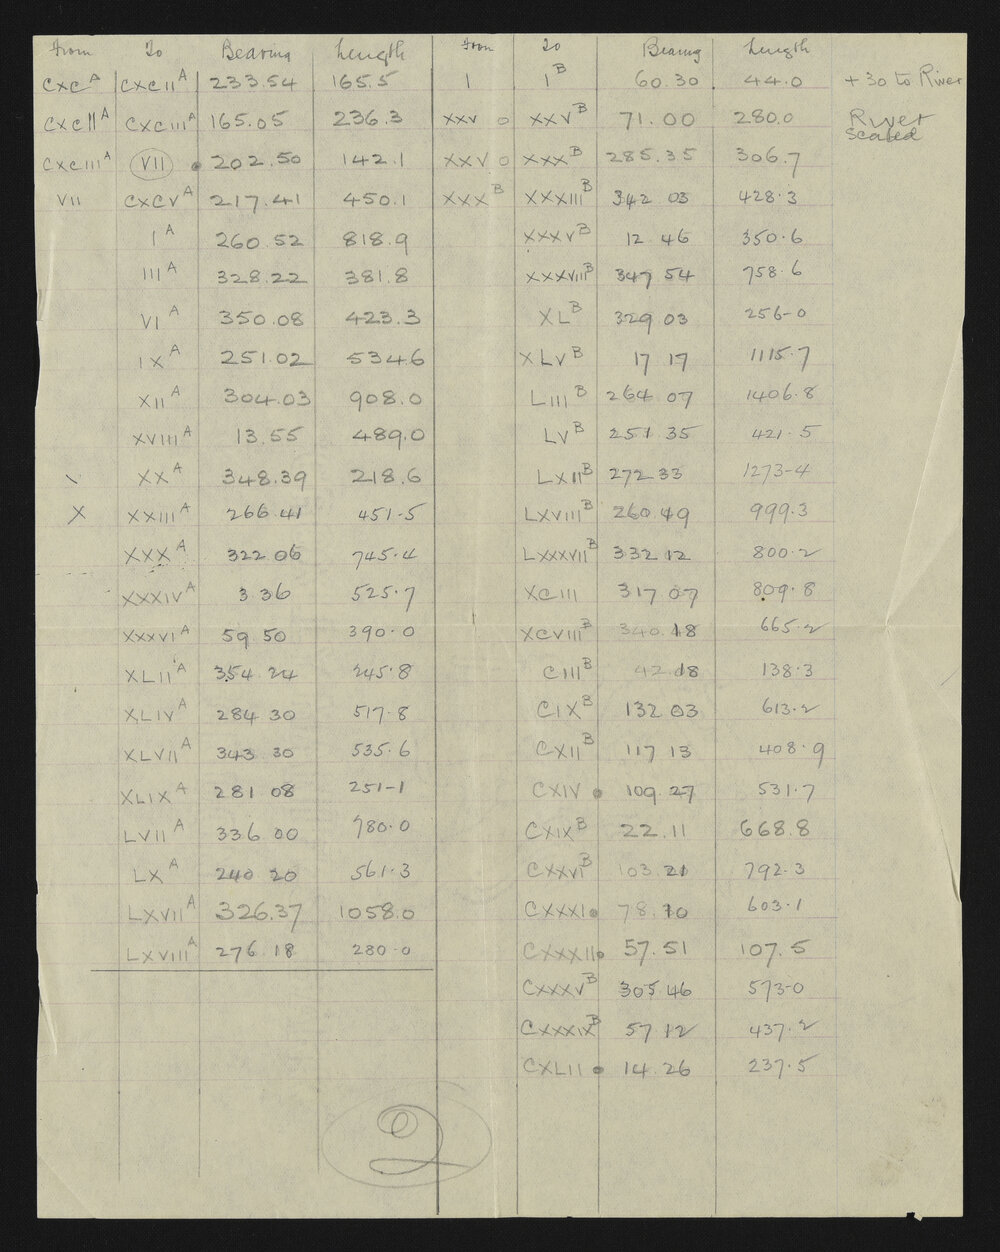 From To Bearing Length From To Bearing Length
CXC^A CXCII^A 233.54 165.5 I I^B 60.30 44.0 +30 to River
CXCII^A CXCIII^A 165.05 236.3 XXV o XXV^B 71.00 280.0 River Scaled
CXCIII^A VII • 202.50 142.1 XXV o XXX^B 285.35 306.7
VII CXCV^A 217.41 450.1 XXX^B XXXIII^B 342 03 428.3
I^A 260.52 818.9 XXXV^B 12 46 350.6
III^A 328.22 381.8 XXXVIII^B 347 54 758.6
VI^A 350.08 423.3 XL^B 329 03 256-0
IX^A 251.02 534.6 XLV^B 17 17 1115.7
XII^A 304.03 908.0 LIII^B 264 07 1406.8
XVIII^A 13.55 489.0 LV^B 251 35 421.5
XX^A 348.39 218.6 LXII^B 272 33 1273-4
X XXIII^A 266.41 451-5 LXVIII^B 260 49 999.3
XXX^A 322 06 745.4 LXXXVII^B 332 12 800.2
XXXIV^A 3 36 525.7 XCIII 317 07 809.8
XXXVI^A 59 50 390.0 XCVIII^B 340 18 665.2
XLII^A 354 24 245.8 CIII^B 42 18 138.3
XLIV^A 284 30 517.8 CIX^B 132 03 613.2
XLVII^A 343 30 535.6 CXII^B 117 13 408.9
XLIX^A 281 08 251-1 CXIV • 109.27 531.7
LVII^A 336 00 780.0 CXIX^B 22.11 668.8
LX^A 240 20 561.3 CXXVI^B 103.21 792.3
LXVII^A 326.37 1058.0 CXXXI • 78.10 603.1
LXVIII^A 276.18 280.0 CXXXII • 57.51 107.5
CXXXV^B 305 46 573-0
CXXXIX^B 57 12 437.2
CXLII • 14.26 237.5
2